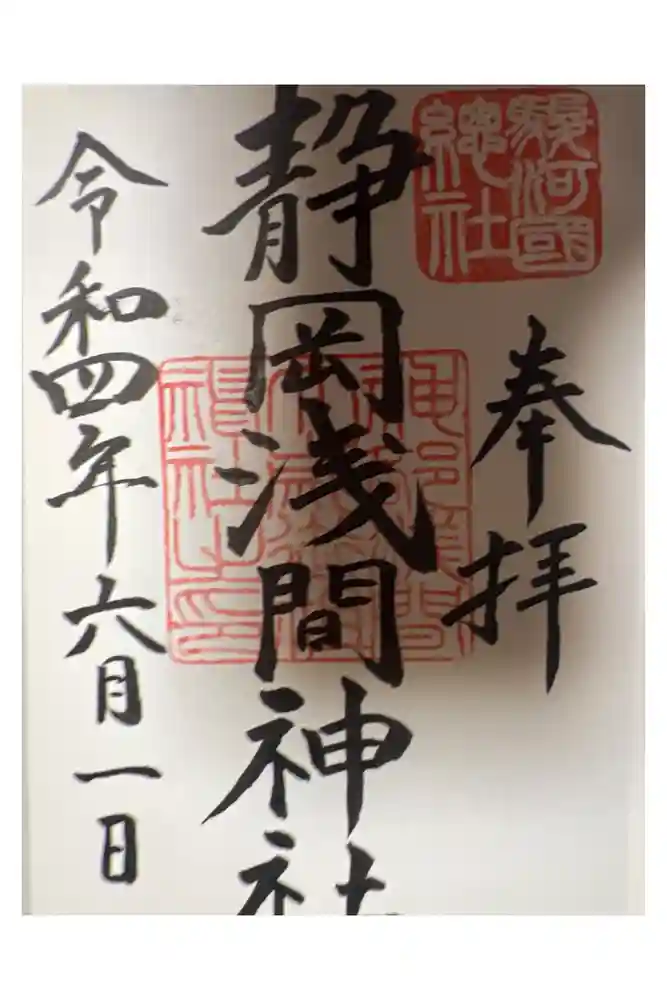 駿河國
總社
奉拝
静岡浅間神社
令和四年六月一日